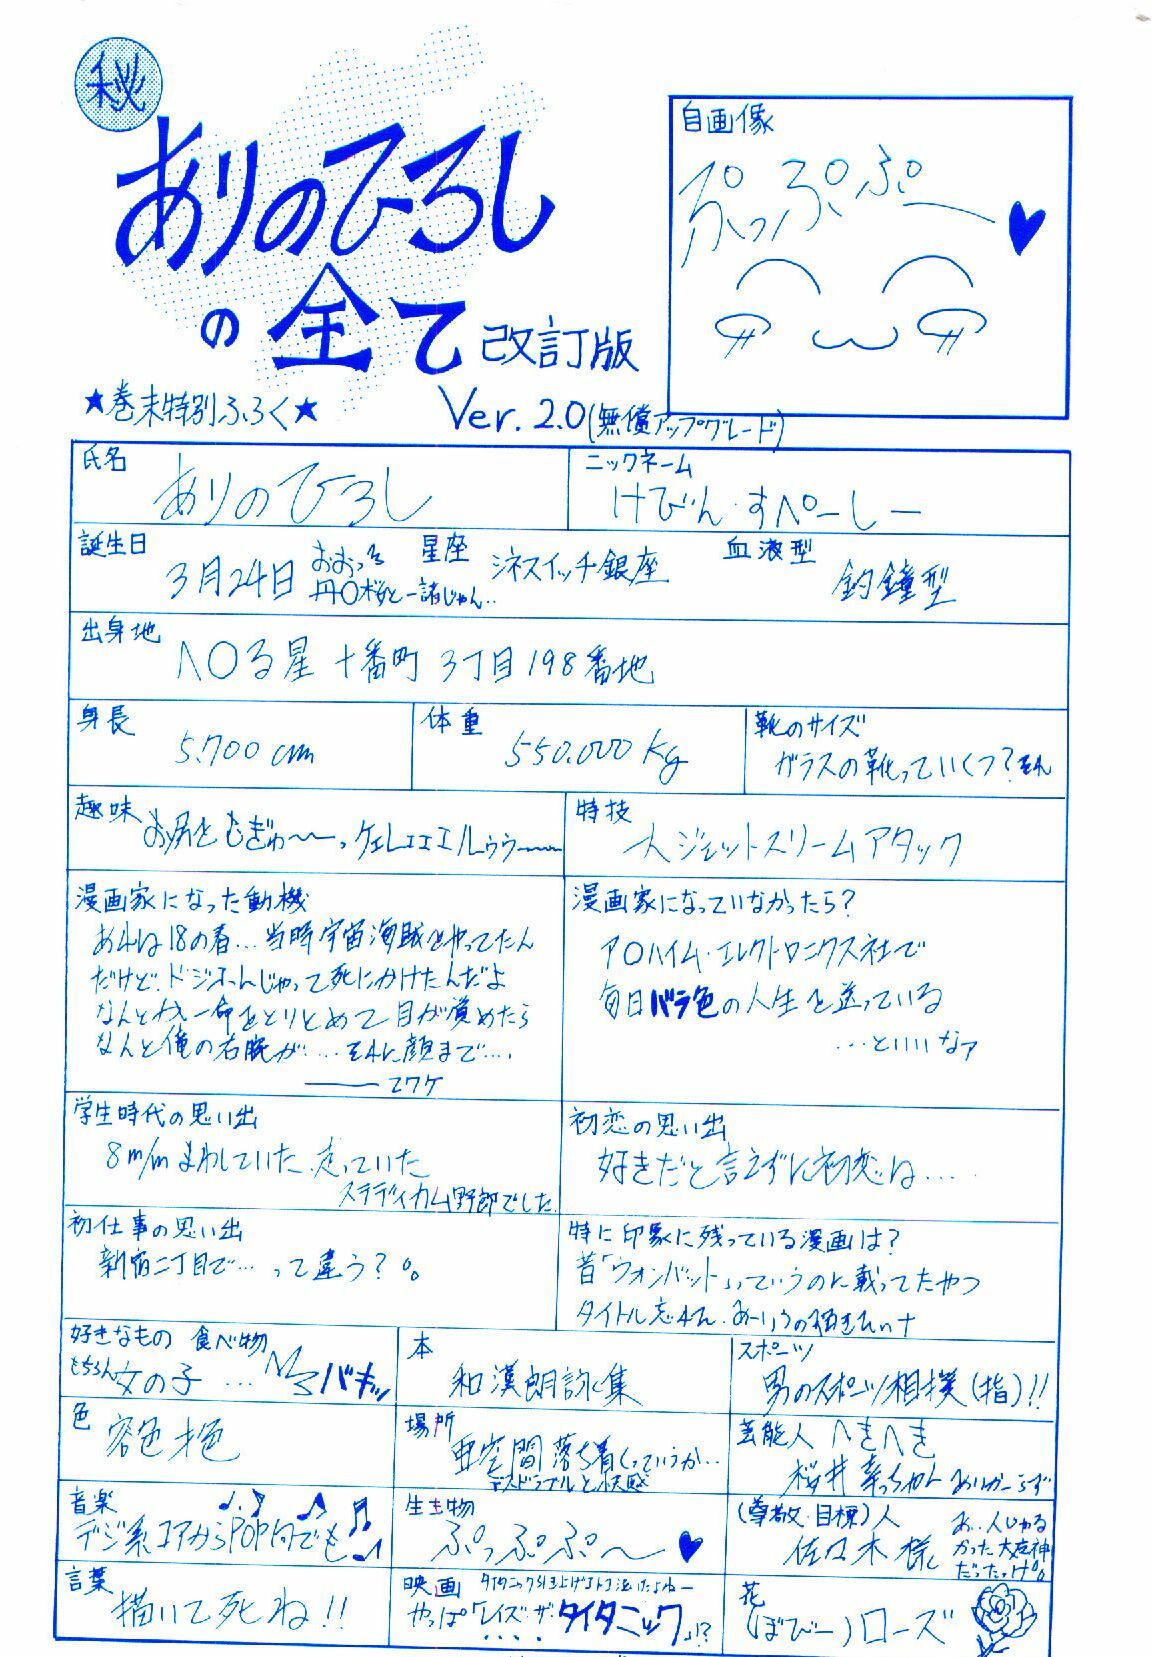 秘
ありのひろし
の全て 改訂版
★巻末特別ふろく★
Ver. 2.0(無償アップグレード)
自画像
ぷっぷぷぷー
氏名
ありのひろし
ニックネーム
けびん・すぺーしー
誕生日
3月24日 おおっ
丹○桜と一諸じゃん..
星座
シネスイッチ銀座
血液型
釣鐘型
出身地
ハ○る星 十番町 3丁目198番地
身長
5.700cm
体重
550.000kg
靴のサイズ
ガラスの靴っていくつ?
趣味
お尻を むぎゅ〜〜っ
特技
人ジェットストリームアタック
漫画家になった動機
あれは18の春…当時宇宙海賊をやってたん
だけど、ドジふんじゃって死にかけたんだよ
なんとか一命をとりとめて目が覚めたら
なんと俺の右腕が……それに顔まで….
漫画家になっていなかったら?
ア○ハイム・エレクトロニクス社で
毎日バラ色の人生を送っている
…といいなァ
学生時代の思い出
8m/mまわしていた、走っていた
ステディカム野郎でした
初恋の思い出
好きだと言えずに初恋は….
初仕事の思い出
新宿二丁目で…って違う?
特に印象に残っている漫画は?
昔「ウォンバット」っていうのに載ってたやつ
タイトル忘れた.
好きなもの 食べ物
もちろん女の子 … バキッ
本
和漢朗詠集
スポーツ
男のスポーツ相撲(指)!!
色
容色才色
場所
亜空間 落ち着くっていうか…
芸能人 へきへき
桜井幸っちゃん
音楽
デジ系コアからPOP何でも
生き物
ぷっぷぷぷ〜
(尊敬・目標)人
佐々木様
あ..人じゃな
かった大巨神
だったっけ
言葉
描いて死ね!!
映画
やっぱ「レイズ・ザ・タイタニック」!?
花
(ぼびー)ローズ